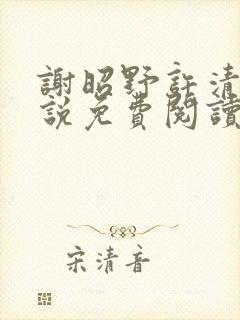 謝昭野許清
說免費閱讀
宋清音